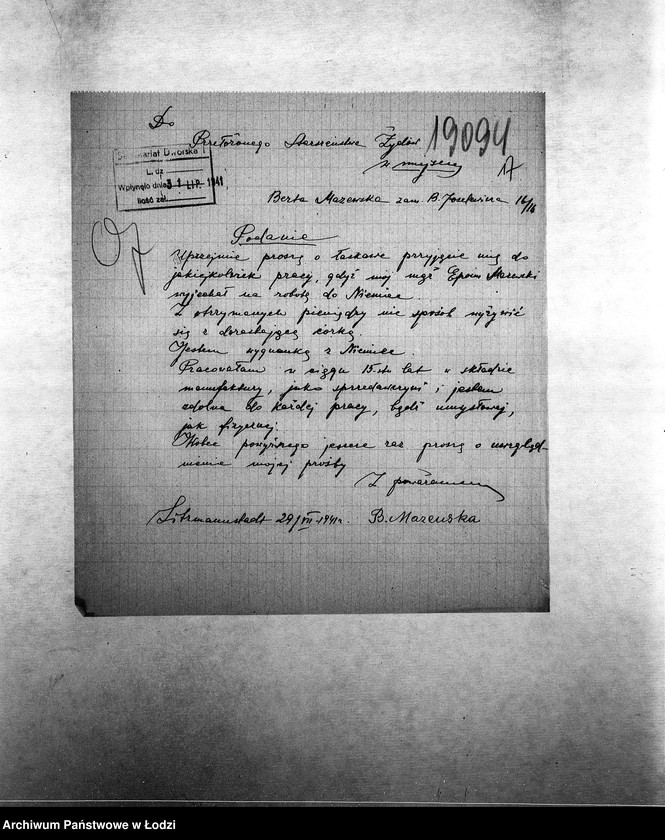 Do
Przełożonego Starszeństwa Żydów
w miejscu
19094
Sekretariat Dworska 1
L. dz.
Wpłynęło dnia 31 LIP. 1941
Ilość zał.
Berta Mazewska zam. B. Joselewicza 16/16
Podanie
Uprzejmie proszę o łaskawe przyjęcie mię do
jakiejkolwiek pracy, gdyż mój mąż Efroim Mazewski
wyjechał na robotę do Niemiec.
Z otrzymanych pieniędzy nie sposób wyżywić
się z dorastającą córką.
Jestem wygnanką z Niemiec.
Pracowałam w ciągu 15-stu lat w składzie
manufaktury, jako sprzedawczyni i jestem
zdolna do każdej pracy, bądź umysłowej,
jak fizycznej.
Wobec powyższego jeszcze raz proszę o uwzględ-
nienie mojej prośby
Z poważaniem
Litzmannstadt 29/VII-1941r. B. Mazewska
Archiwum Państwowe w Łodzi